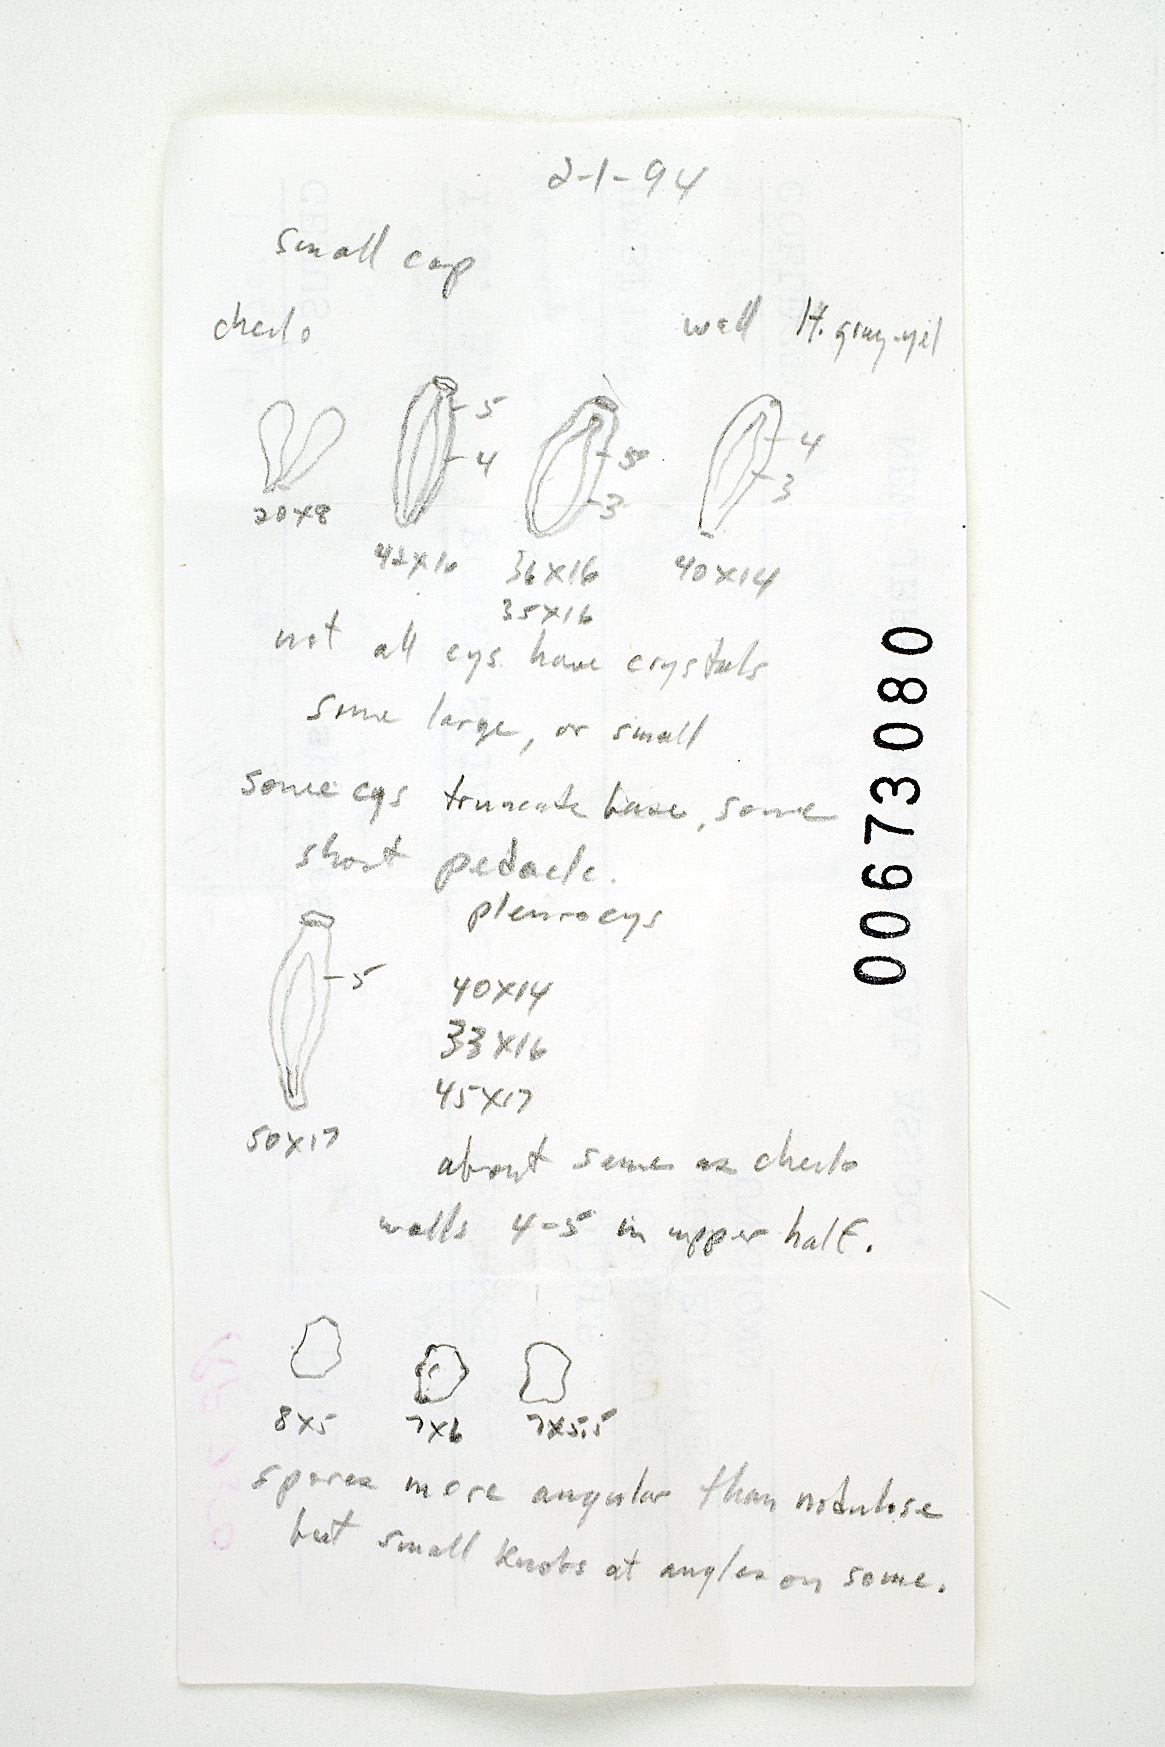 2-1-94
small cap
cheilo wall lt. gray-yel
5
4
5
3
4
3
20x8
42x16 36x16 40x14
35x16
not all cys. have crystals
some large, or small
some cys truncate base, some
short pedacle.
pleurocys
5
40x14
33x16
45x17
50x17
about same as cheilo
walls 4-5 in upper half.
8x5 7x6 7x5.5
spores more angular than nodulose
but small knobs at angles on some.
00673080